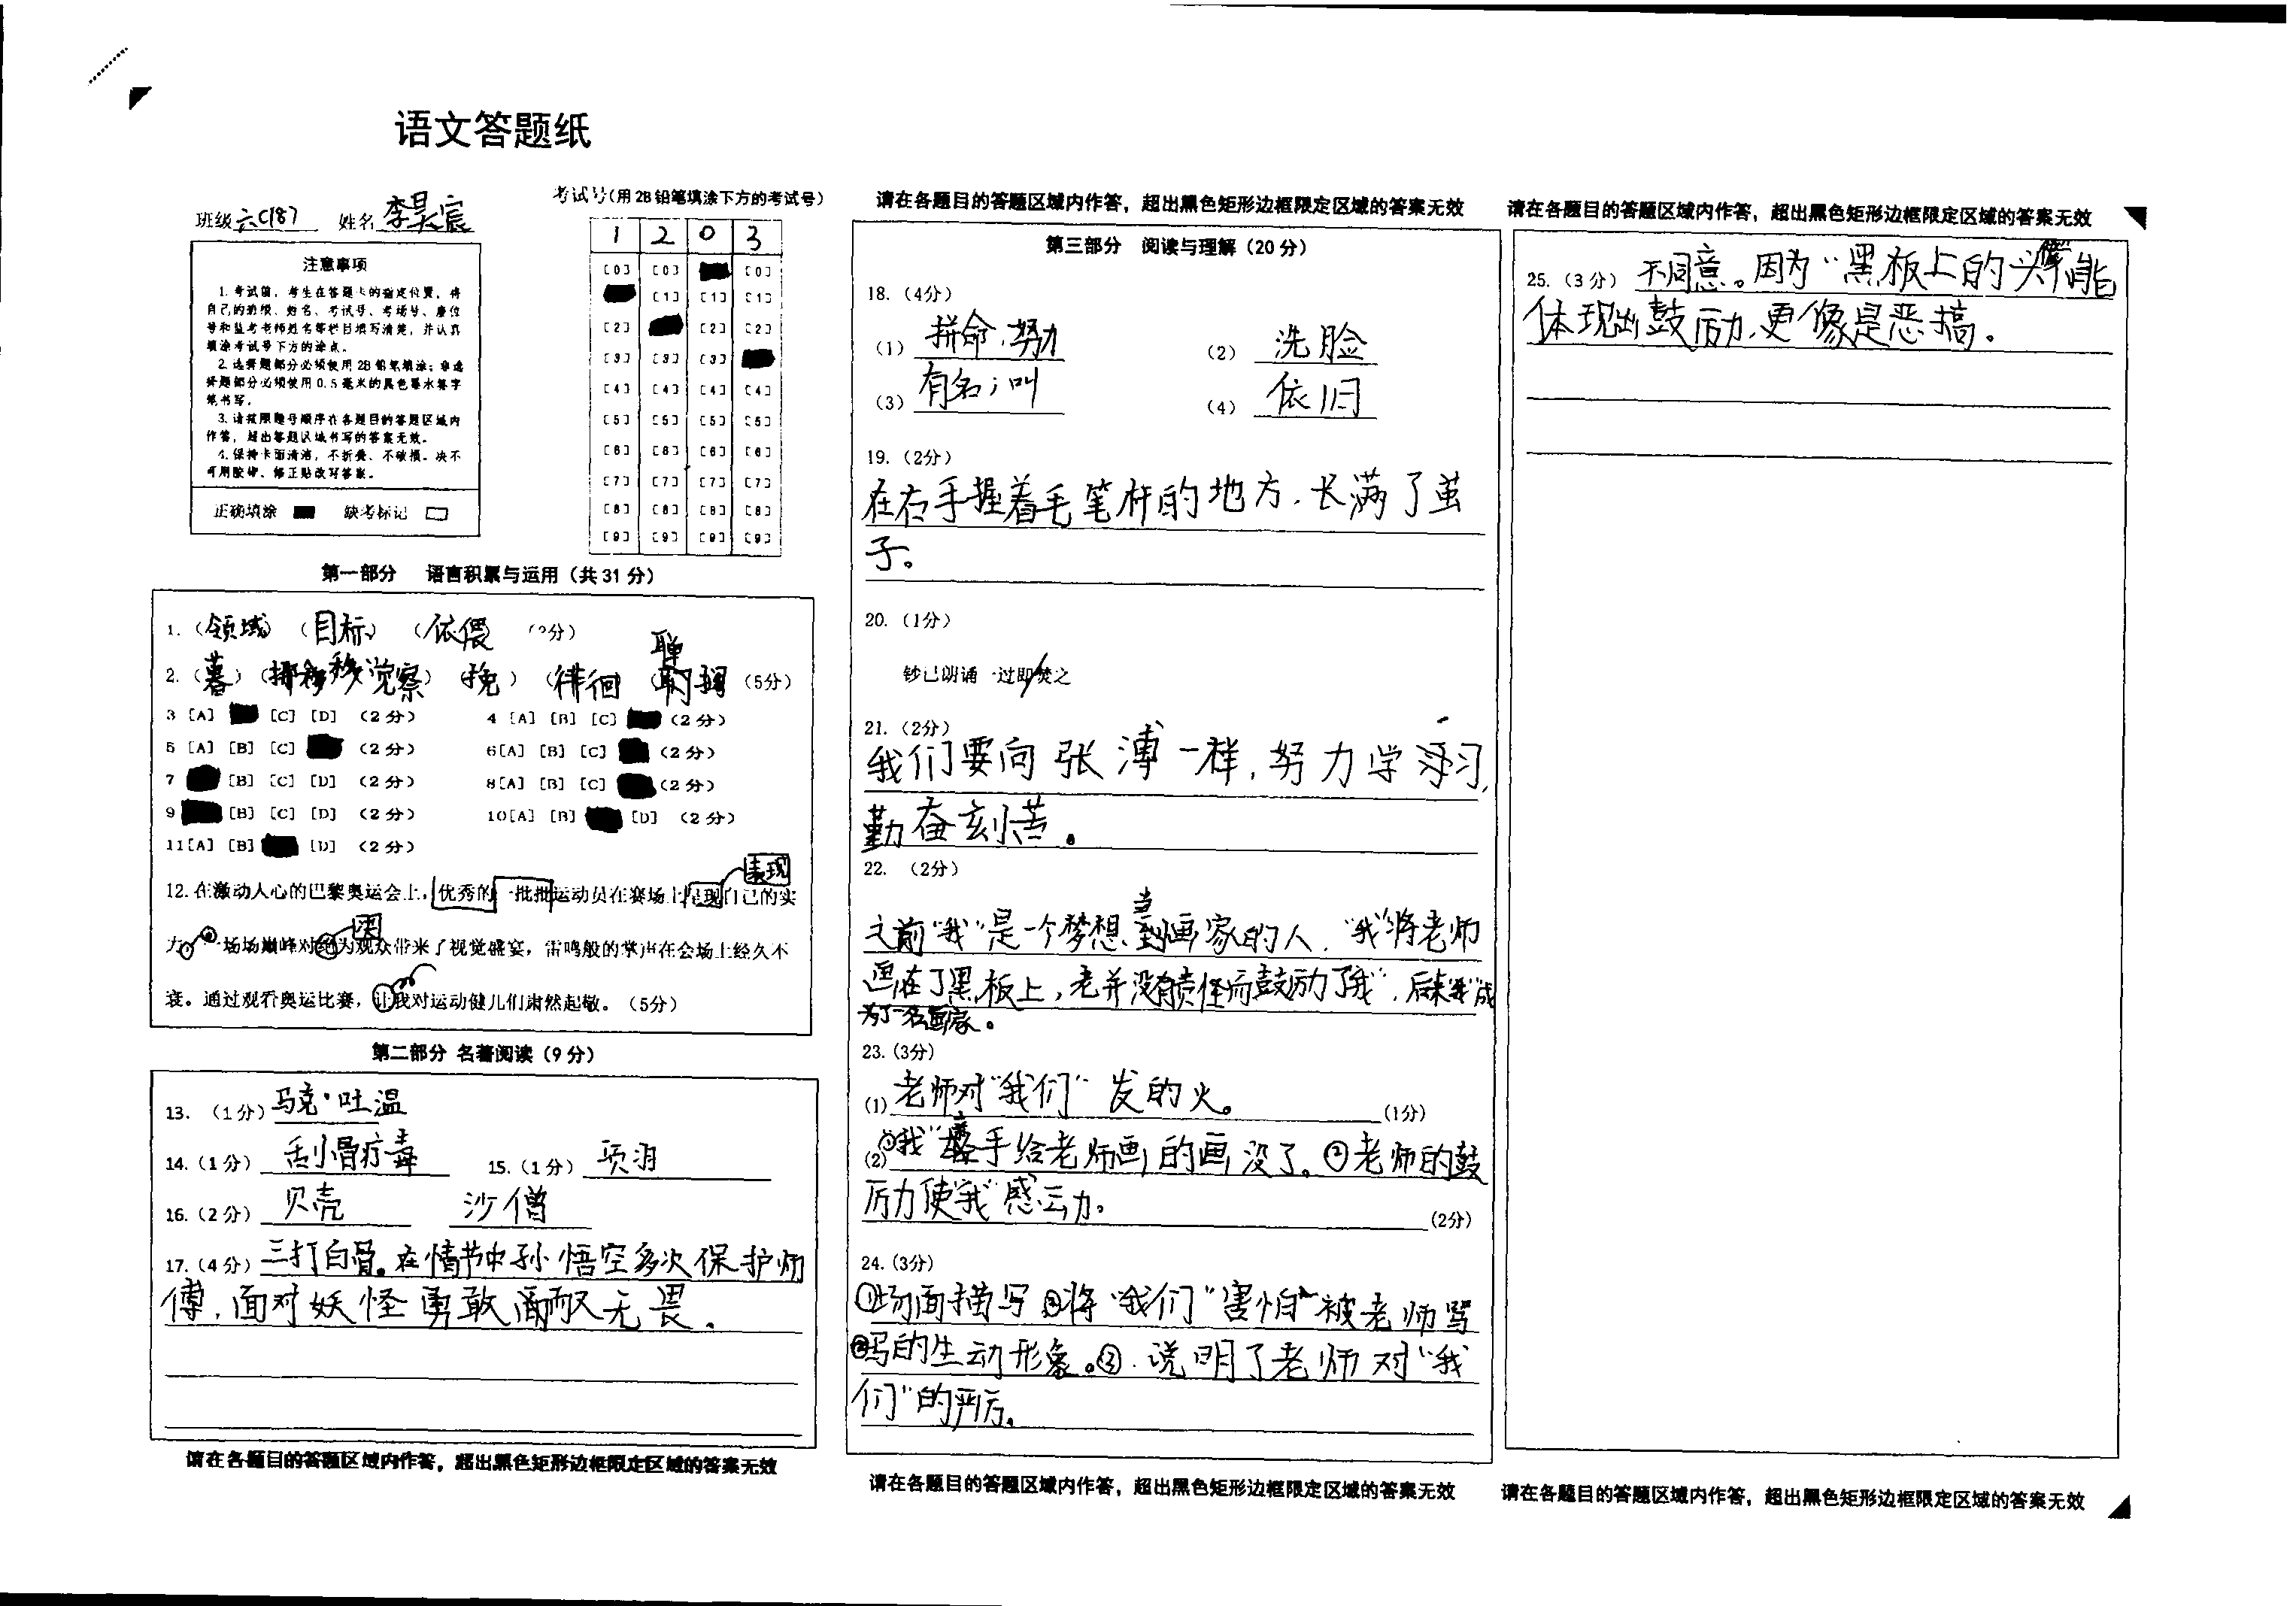 语文答题纸
班级 六(18) 姓名 李昊宸
考试号(用2B铅笔填涂下方的考试号)
1 2 0 3
[0] [0] [0]
[1] [1] [1]
[2] [2] [2]
[3] [3] [3]
[4] [4] [4] [4]
[5] [5] [5] [5]
[6] [6] [6] [6]
[7] [7] [7] [7]
[8] [8] [8] [8]
[9] [9] [9] [9]
注意事项
1.考试前,考生在答题卡的指定位置,将
自己的班级、姓名、考试号、考场号、座位
号和监考老师姓名等栏目填写清楚,并认真
填涂考试号下方的涂点。
2.选择题部分必须使用2B铅笔填涂;非选
择题部分必须使用0.5毫米的黑色墨水签字
笔书写。
3.请按照题号顺序在各题目的答题区域内
作答,超出答题区域书写的答案无效。
4.保持卡面清洁,不折叠、不破损。决不
可用胶带、修正贴改写答案。
正确填涂 缺考标记
第一部分 语言积累与运用(共31分)
1.(领域)(目标)(依偎
2.(暮)(挪移 觉察)(挽)(徘徊 (5分)
3 [A] [C] [D] (2分) 4 [A] [B] [C] (2分)
5 [A] [B] [C] (2分) 6[A] [B] [C] (2分)
7 [B] [C] [D] (2分) 8[A] [B] [C] (2分)
9 [B] [C] [D] (2分) 10[A] [B] [D] (2分)
11[A] [B] [D] (2分)
表现
12.在激动人心的巴黎奥运会上,优秀的一批批运动员在赛场上呈现自己的实
力。一场场巅峰对 为观众带来了视觉盛宴,雷鸣般的掌声在会场上经久不
衰。通过观看奥运比赛,让我对运动健儿们肃然起敬。(5分)
第二部分 名著阅读(9分)
13.(1分)马克·吐温
14.(1分)刮骨疗毒 15.(1分)项羽
16.(2分)贝壳 沙僧
17.(4分)三打白骨。在情节中孙悟空多次保护师
傅,面对妖怪勇敢 无畏。
请在各题目的答题区域内作答,超出黑色矩形边框限定区域的答案无效
请在各题目的答题区域内作答,超出黑色矩形边框限定区域的答案无效
第三部分 阅读与理解(20分)
18.(4分)
(1)拼命;努力 (2)洗脸
(3)有名;叫 (4)依旧
19.(2分)
在右手握着毛笔杆的地方,长满了茧
子。
20.(1分)
钞已朗诵一过即/焚之
21.(2分)
我们要向张溥一样,努力学习,
勤奋刻苦。
22.(2分)
之前“我”是一个梦想当画家的人,“我”将老师
画在了黑板上,老并没有责怪而鼓励了“我”,后来“我”成
为了一名画家。
23.(3分)
(1)老师对“我们”发的火。(1分)
(2)①“我”亲手给老师画的画没了。②老师的鼓
励使“我”感动。(2分)
24.(3分)
①场面描写②将“我们”害怕被老师骂
写的生动形象。③.说明了老师对“我
们”的严厉。
请在各题目的答题区域内作答,超出黑色矩形边框限定区域的答案无效
请在各题目的答题区域内作答,超出黑色矩形边框限定区域的答案无效
25.(3分)不同意。因为“黑板上的头像”能
体现出鼓励,更像是恶搞。
请在各题目的答题区域内作答,超出黑色矩形边框限定区域的答案无效